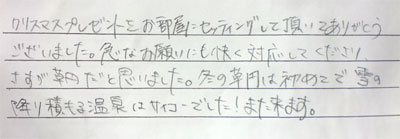 クリスマスプレゼントをお部屋にセッティングして頂いてありがとう
ございました。急なお願いにも快く対応してください
さすが草円だと思いました。冬の草円は初めてで雪の
降り積もる温泉はサイコーでした！また来ます。